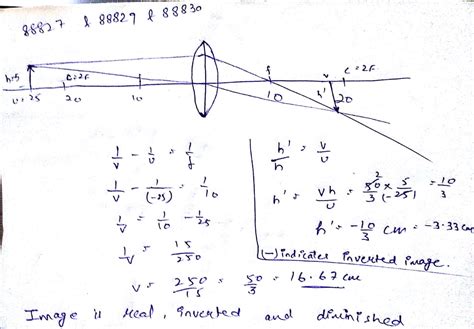 88827 & 88829 & 88830
h=5
C=2F
f
v
C=2F
u=25
20
10
10
h'
20
1/v - 1/u = 1/f
1/v - 1/(-25) = 1/10
1/v = 1/10 - 1/25
1/v = 15/250
v = 250/15 = 50/3 = 16.67 cm
h'/h = v/u
h' = vh/u = 50/3 × 5/(-25) = 10/3
h' = -10/3 cm = -3.33 cm
(-) indicates inverted image.
Image is real, inverted and diminished